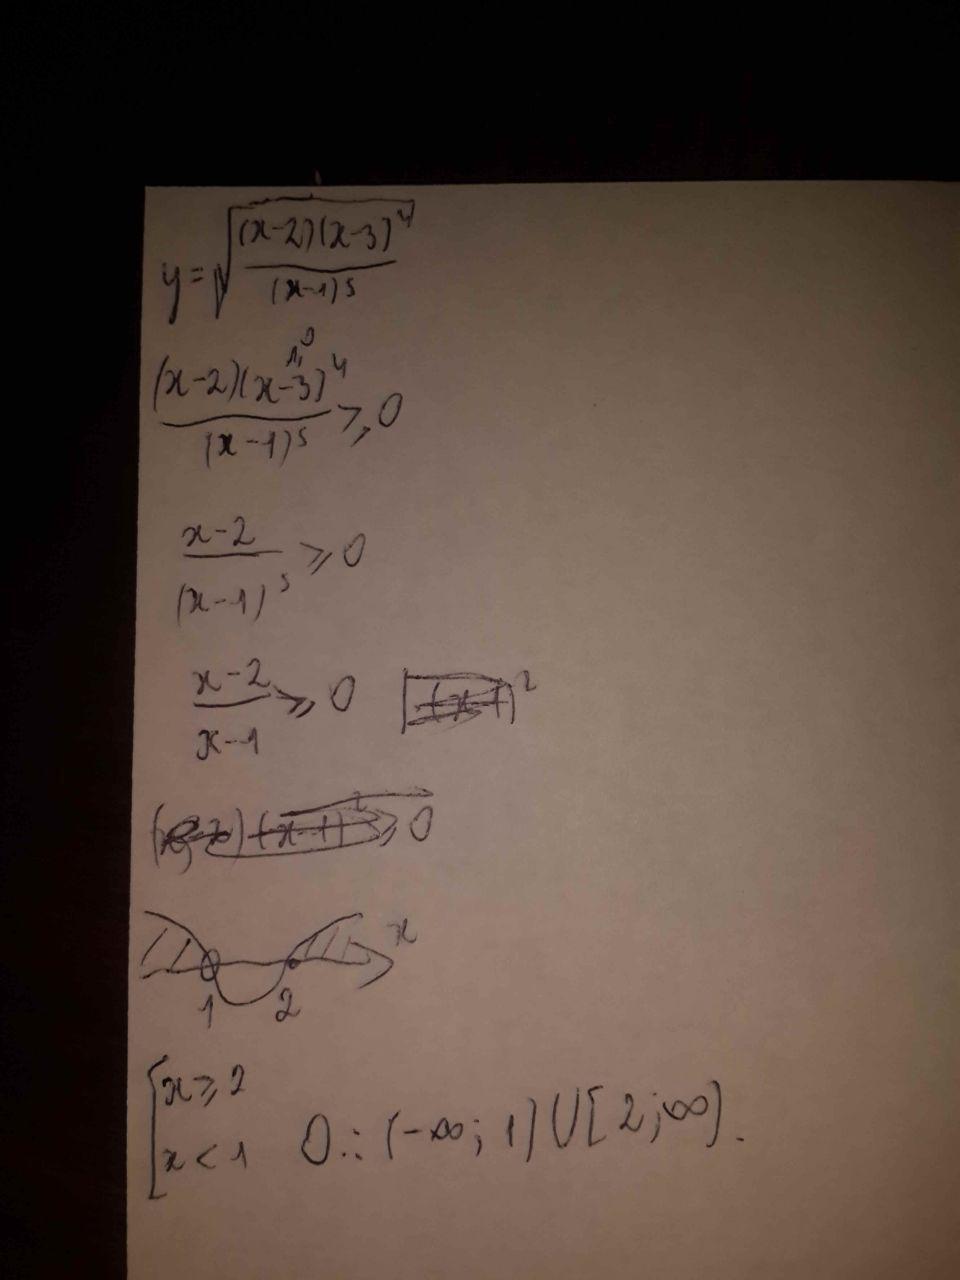 y = √((x-2)(x-3)⁴/(x-1)⁵)
(x-2)(x-3)⁴/(x-1)⁵ ⩾ 0
x-2/(x-1)⁵ ⩾ 0
x-2/x-1 ⩾ 0
⩾ 0
x
1 2
[x ⩾ 2
x < 1 O.: (-∞; 1) U [2; ∞).